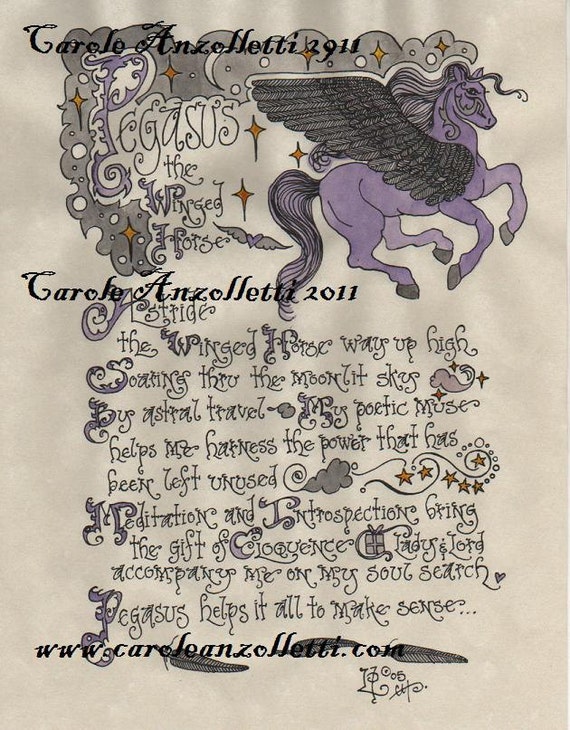 Carole Anzolletti 2911
Pegasus
the
Winged
Horse
Carole Anzolletti 2011
Astride
the Winged Horse way up high
Soaring thru the moonlit sky
By astral travel - My poetic Muse
helps me harness the power that has
been left unused
Meditation and Introspection bring
the gift of Eloquence - Lady & Lord
accompany me on my soul search
Pegasus helps it all to make sense...
www.caroleanzolletti.com
©05